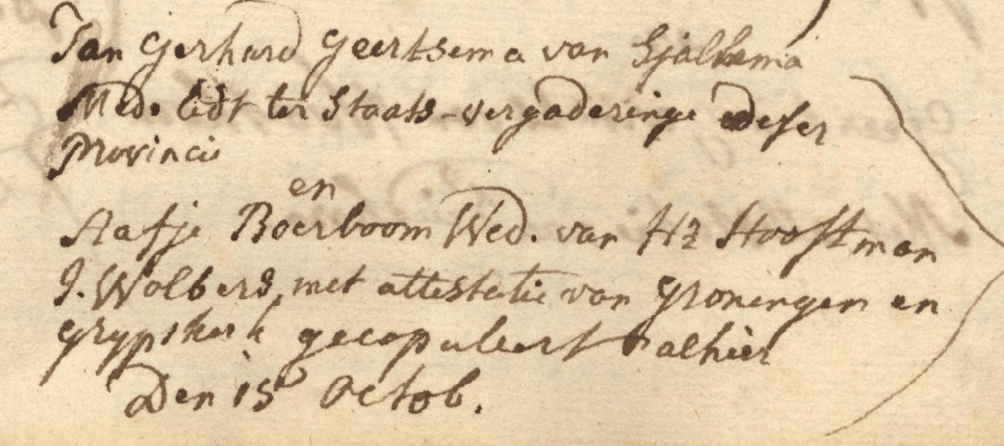 Jan Gerhard Geertsema van Sjallema
Med. Lidt ter Staats-vergaderinge deser
Provincie
en
Aafje Boerboom Wed. van Hz Hooftman
J. Wolbers, met attestatie van Groningen en
Grypskerk gecopuleert alhier
Den 15 Octob.